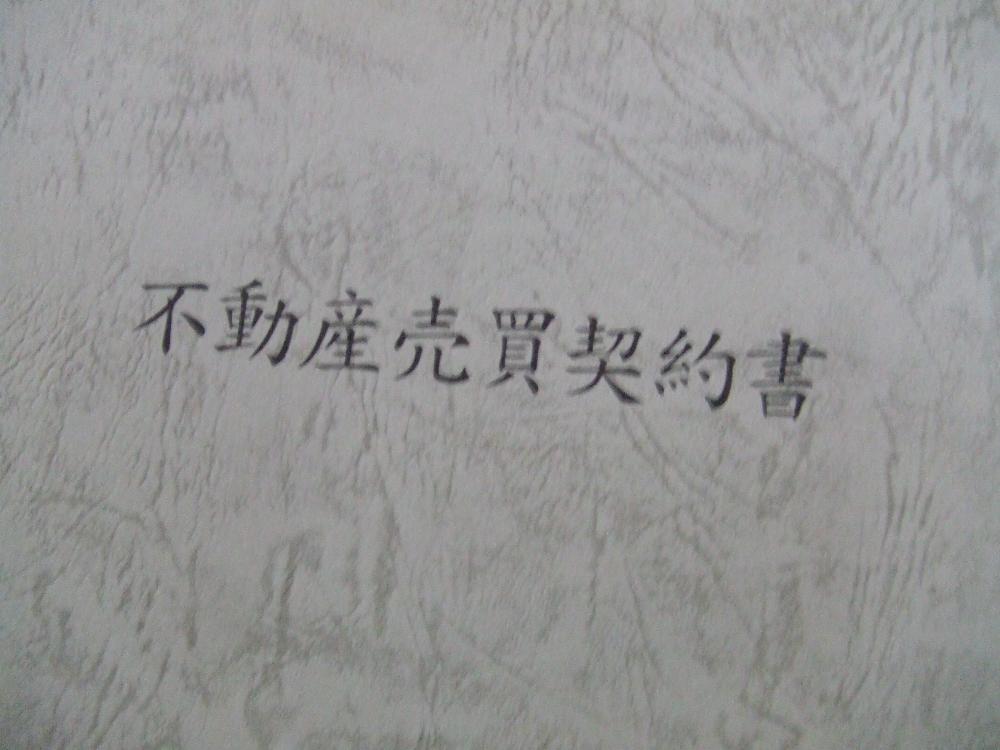 不動産売買契約書